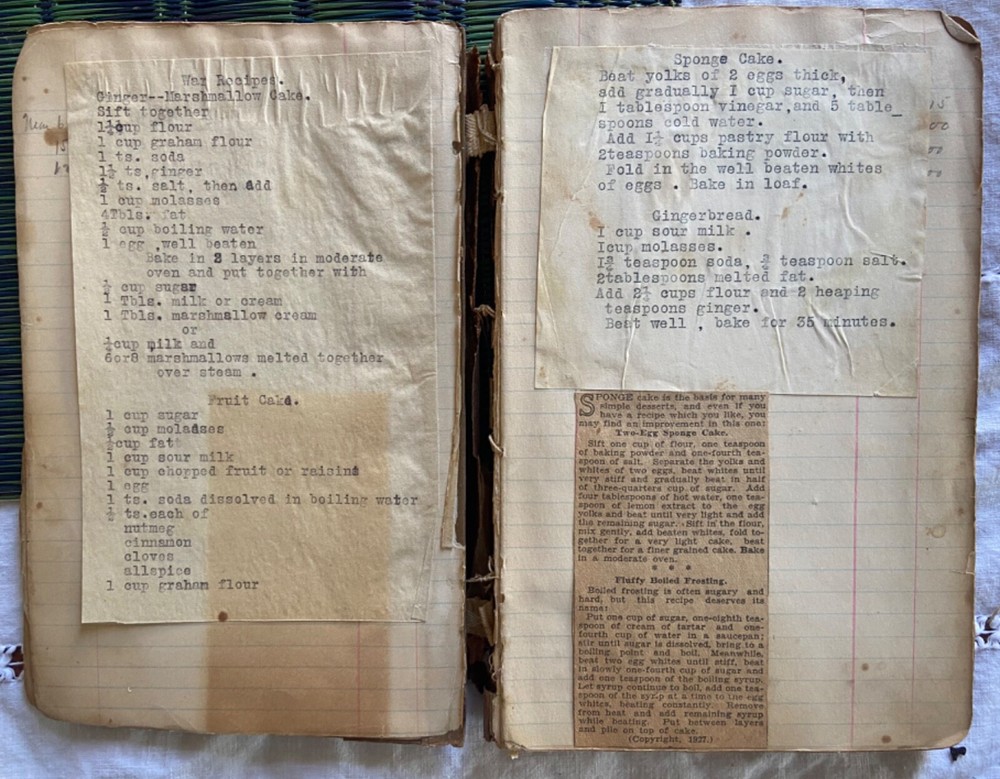 War Recipes.
Ginger--Marshmallow Cake.
Sift together
1½cup flour
1 cup graham flour
1 ts. soda
1½ ts,ginger
½ ts. salt, then add
1 cup molasses
4Tbls. fat
½ cup boiling water
1 egg ,well beaten
Bake in 2 layers in moderate
oven and put together with
½ cup sugar
1 Tbls. milk or cream
1 Tbls. marshmallow cream
or
¼cup milk and
6or8 marshmallows melted together
over steam .
Fruit Cake.
1 cup sugar
½ cup molasses
½cup fat
1 cup sour milk
1 cup chopped fruit or raisins
1 egg
1 ts. soda dissolved in boiling water
½ ts.each of
nutmeg
cinnamon
cloves
allspice
1 cup graham flour
Sponge Cake.
Beat yolks of 2 eggs thick,
add gradually I cup sugar, then
I tablespoon vinegar,and 5 table_
spoons cold water.
Add I½ cups pastry flour with
2teaspoons baking powder.
Fold in the well beaten whites
of eggs . Bake in loaf.
Gingerbread.
I cup sour milk .
Icup molasses.
teaspoon soda, teaspoon salt.
2tablespoons melted fat.
Add cups flour and 2 heaping
teaspoons ginger.
Beat well , bake for 35 minutes.
SPONGE cake is the basis for many
simple desserts, and even if you
have a recipe which you like, you
may find an improvement in this one:
Two-Egg Sponge Cake.
Sift one cup of flour, one teaspoon
of baking powder and one-fourth tea-
spoon of salt. Separate the yolks and
whites of two eggs, beat whites until
very stiff and gradually beat in half
of three-quarters cup of sugar. Add
four tablespoons of hot water, one tea-
spoon of lemon extract to the egg
yolks and beat until very light and add
the remaining sugar. Sift in the flour,
mix gently, add beaten whites, fold to-
gether for a very light cake, beat
together for a finer grained cake. Bake
in a moderate oven.
* * *
Fluffy Boiled Frosting.
Boiled frosting is often sugary and
hard, but this recipe deserves its
name:
Put one cup of sugar, one-eighth tea-
spoon of cream of tartar and one-
fourth cup of water in a saucepan;
stir until sugar is dissolved, bring to a
boiling point and boil. Meanwhile,
beat two egg whites until stiff, beat
in slowly one-fourth cup of sugar and
add one teaspoon of the boiling syrup.
Let syrup continue to boil, add one tea-
spoon of the syrup at a time to the egg
whites, beating constantly. Remove
from heat and add remaining syrup
while beating. Put between layers
and pile on top of cake.
(Copyright, 1927.)
15
00